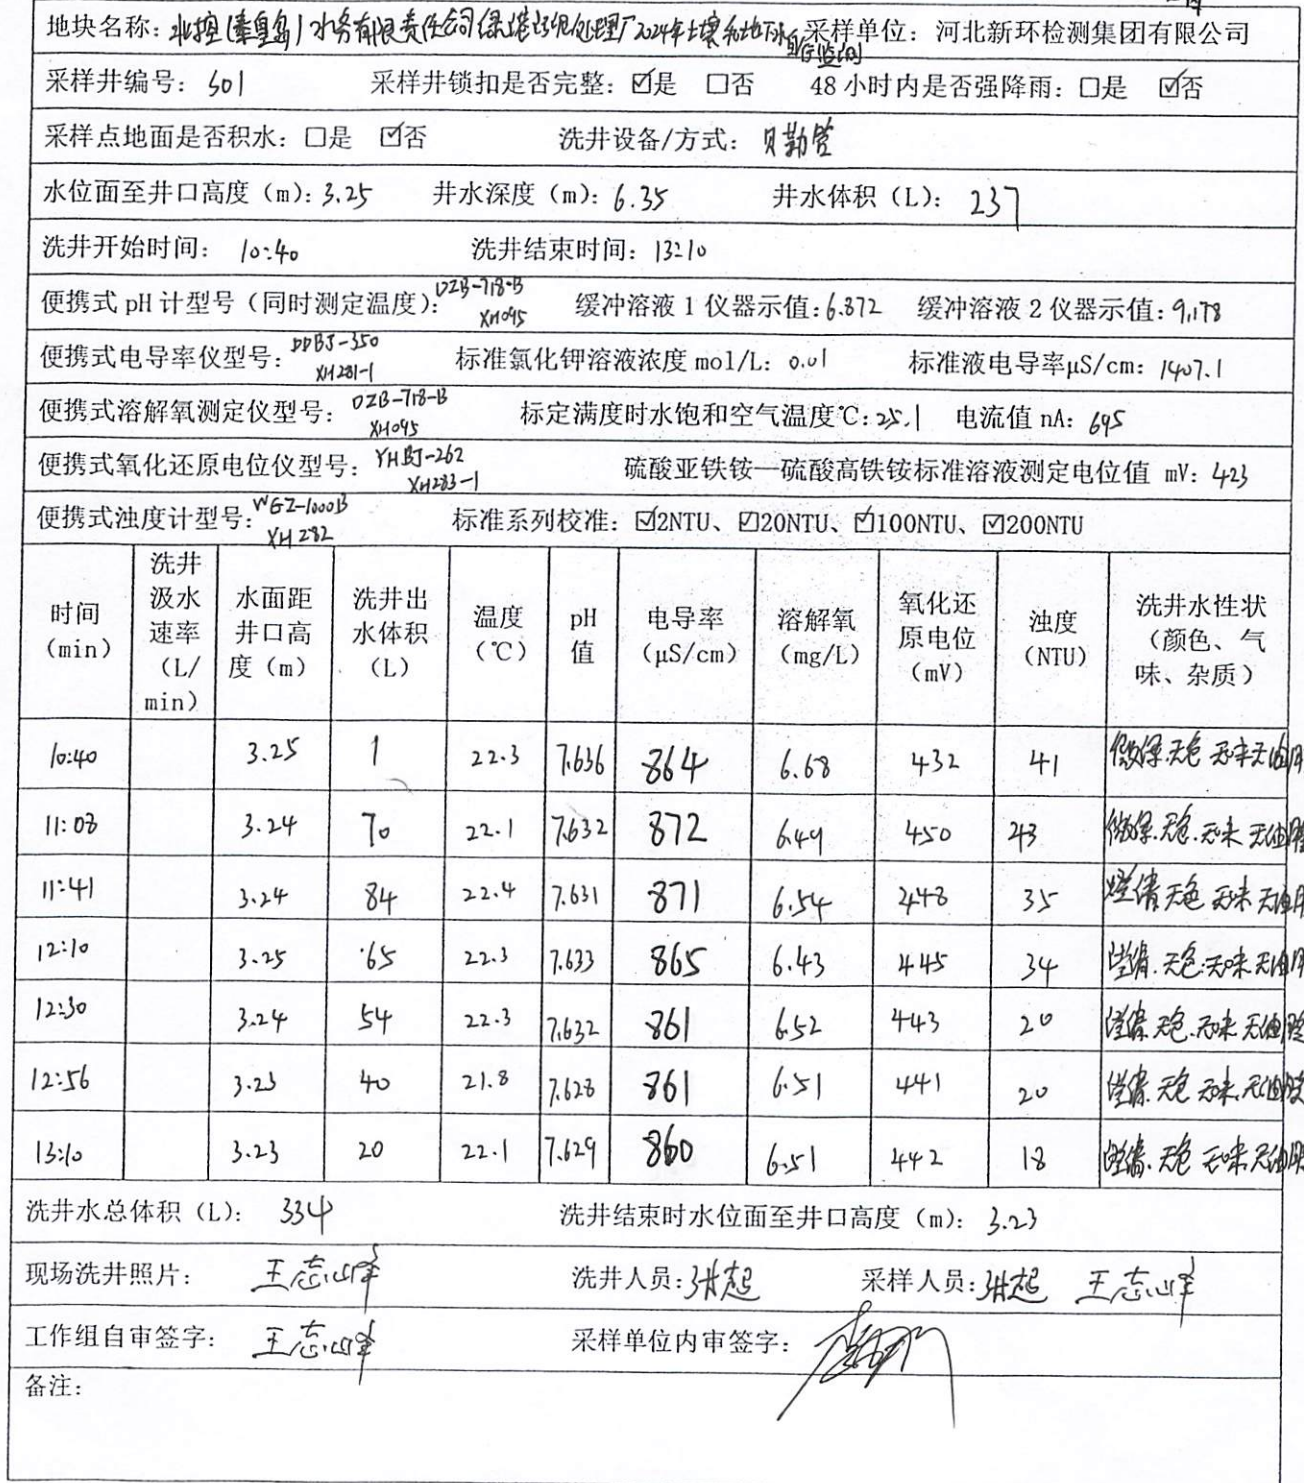 地块名称：北控(秦皇岛)水务有限责任公司绿港污泥处理厂2024年土壤和地下水自行监测 采样单位：河北新环检测集团有限公司
采样井编号：S01 采样井锁扣是否完整：☑是 □否 48小时内是否强降雨：□是 ☑否
采样点地面是否积水：□是 ☑否 洗井设备/方式：贝勒管
水位面至井口高度（m）：3.25 井水深度（m）：6.35 井水体积（L）：237
洗井开始时间：10:40 洗井结束时间：13:10
便携式pH计型号（同时测定温度）：DZB-718-B XH095 缓冲溶液1仪器示值：6.872 缓冲溶液2仪器示值：9.178
便携式电导率仪型号：DDBJ-350 XH281-1 标准氯化钾溶液浓度mol/L：0.01 标准液电导率μS/cm：1407.1
便携式溶解氧测定仪型号：DZB-718-B XH095 标定满度时水饱和空气温度℃：25.1 电流值nA：695
便携式氧化还原电位仪型号：YHBJ-262 XH283-1 硫酸亚铁铵—硫酸高铁铵标准溶液测定电位值 mV：423
便携式浊度计型号：WGZ-1000B XH282 标准系列校准：☑2NTU、☑20NTU、☑100NTU、☑200NTU
时间（min） 洗井汲水速率（L/min） 水面距井口高度（m） 洗井出水体积（L） 温度（℃） pH值 电导率（μS/cm） 溶解氧（mg/L） 氧化还原电位（mV） 浊度（NTU） 洗井水性状（颜色、气味、杂质）
10:40 3.25 1 22.3 7.636 864 6.68 432 41 微浑.无色 无味 无油
11:08 3.24 70 22.1 7.632 872 6.49 450 43 微浑.无色.无味 无油膜
11:41 3.24 84 22.4 7.631 871 6.54 448 35 澄清 无色 无味 无油
12:10 3.25 65 22.3 7.633 865 6.43 445 34 澄清.无色.无味.无油
12:30 3.24 54 22.3 7.632 861 6.52 443 20 澄清.无色.无味 无油膜
12:56 3.23 40 21.8 7.628 861 6.51 441 20 澄清.无色 无味.无油膜
13:10 3.23 20 22.1 7.629 860 6.51 442 18 澄清.无色 无味.无油
洗井水总体积（L）：334 洗井结束时水位面至井口高度（m）：3.23
现场洗井照片：王志峰 洗井人员：张起 采样人员：张起 王志峰
工作组自审签字：王志峰 采样单位内审签字：
备注：